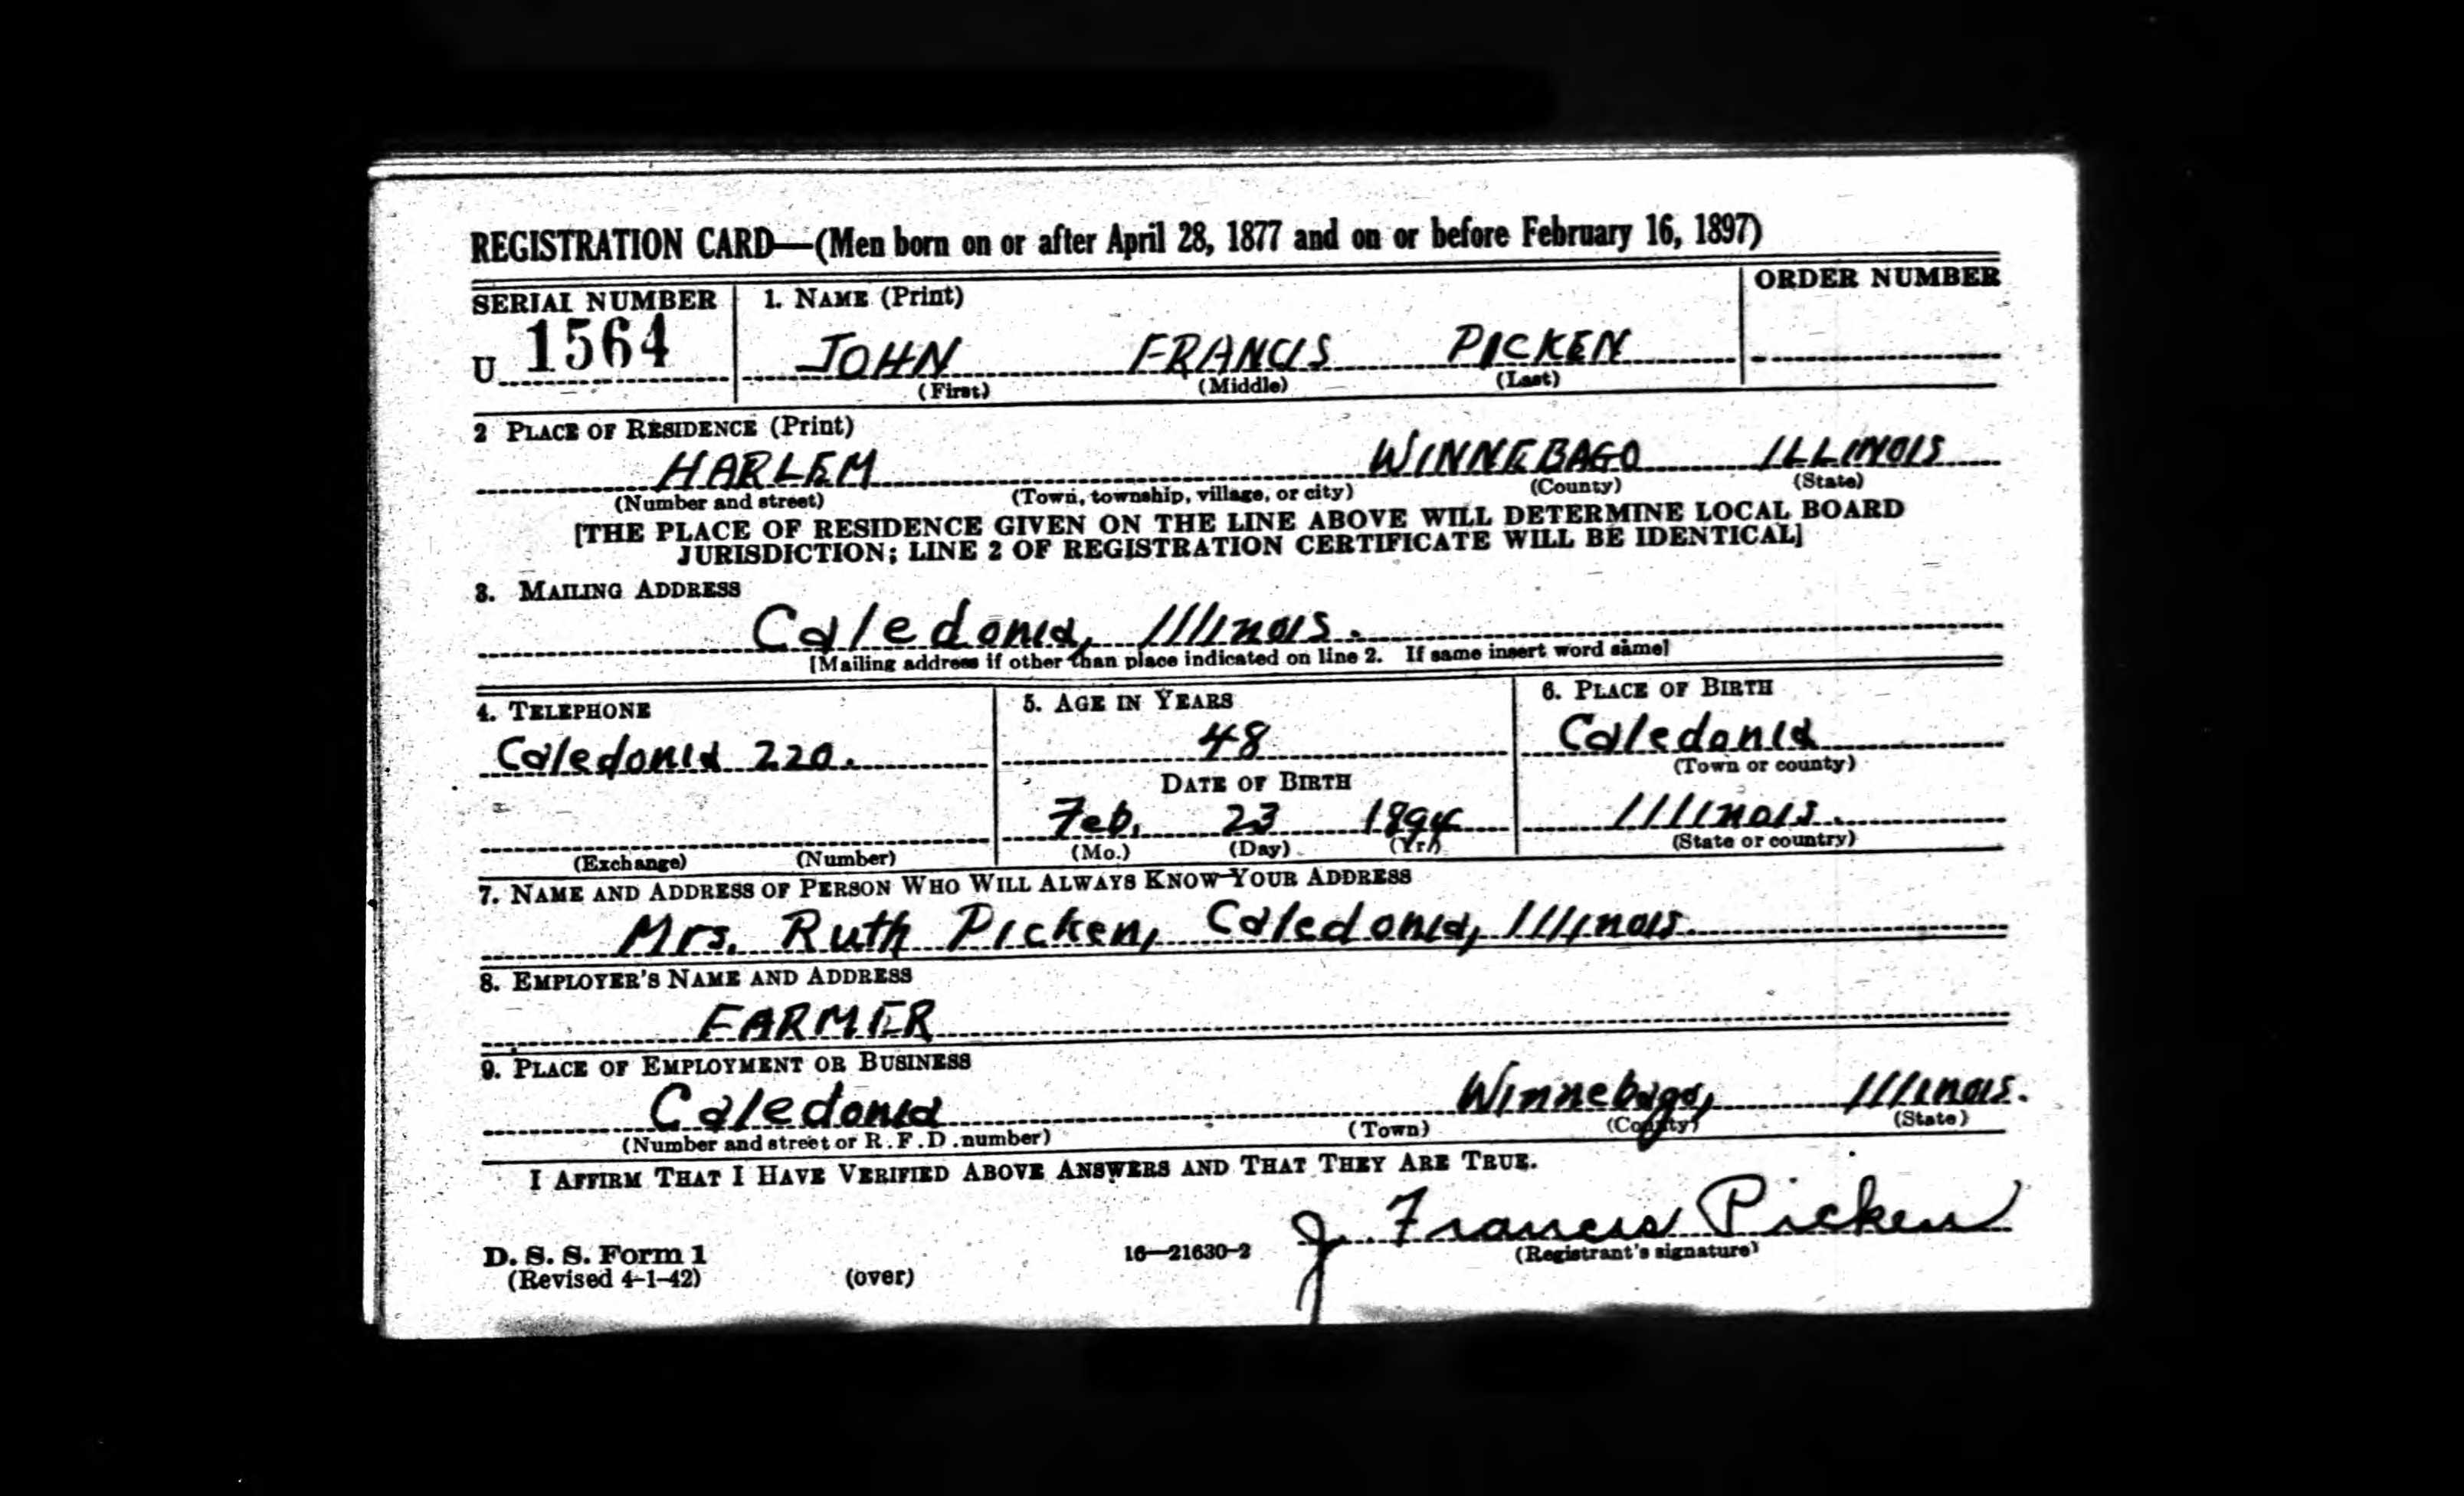 REGISTRATION CARD—(Men born on or after April 28, 1877 and on or before February 16, 1897)
SERIAL NUMBER
1. NAME (Print)
ORDER NUMBER
U 1564
JOHN FRANCIS PICKEN
(First) (Middle) (Last)
2 PLACE OF RESIDENCE (Print)
HARLEM WINNEBAGO ILLINOIS
(Number and street) (Town, township, village, or city) (County) (State)
[THE PLACE OF RESIDENCE GIVEN ON THE LINE ABOVE WILL DETERMINE LOCAL BOARD
JURISDICTION; LINE 2 OF REGISTRATION CERTIFICATE WILL BE IDENTICAL]
3. MAILING ADDRESS
Caledonia, Illinois.
[Mailing address if other than place indicated on line 2. If same insert word same]
4. TELEPHONE
Caledonia 220.
(Exchange) (Number)
5. AGE IN YEARS
48
DATE OF BIRTH
Feb. 23 1894
(Mo.) (Day) (Yr.)
6. PLACE OF BIRTH
Caledonia
(Town or county)
Illinois.
(State or country)
7. NAME AND ADDRESS OF PERSON WHO WILL ALWAYS KNOW YOUR ADDRESS
Mrs. Ruth Picken, Caledonia, Illinois.
8. EMPLOYER'S NAME AND ADDRESS
FARMER
9. PLACE OF EMPLOYMENT OR BUSINESS
Caledonia Winnebago, Illinois.
(Number and street or R. F. D. number) (Town) (County) (State)
I AFFIRM THAT I HAVE VERIFIED ABOVE ANSWERS AND THAT THEY ARE TRUE.
J. Francis Picken
(Registrant's signature)
D. S. S. Form 1
(Revised 4-1-42) (over) 16—21630-2